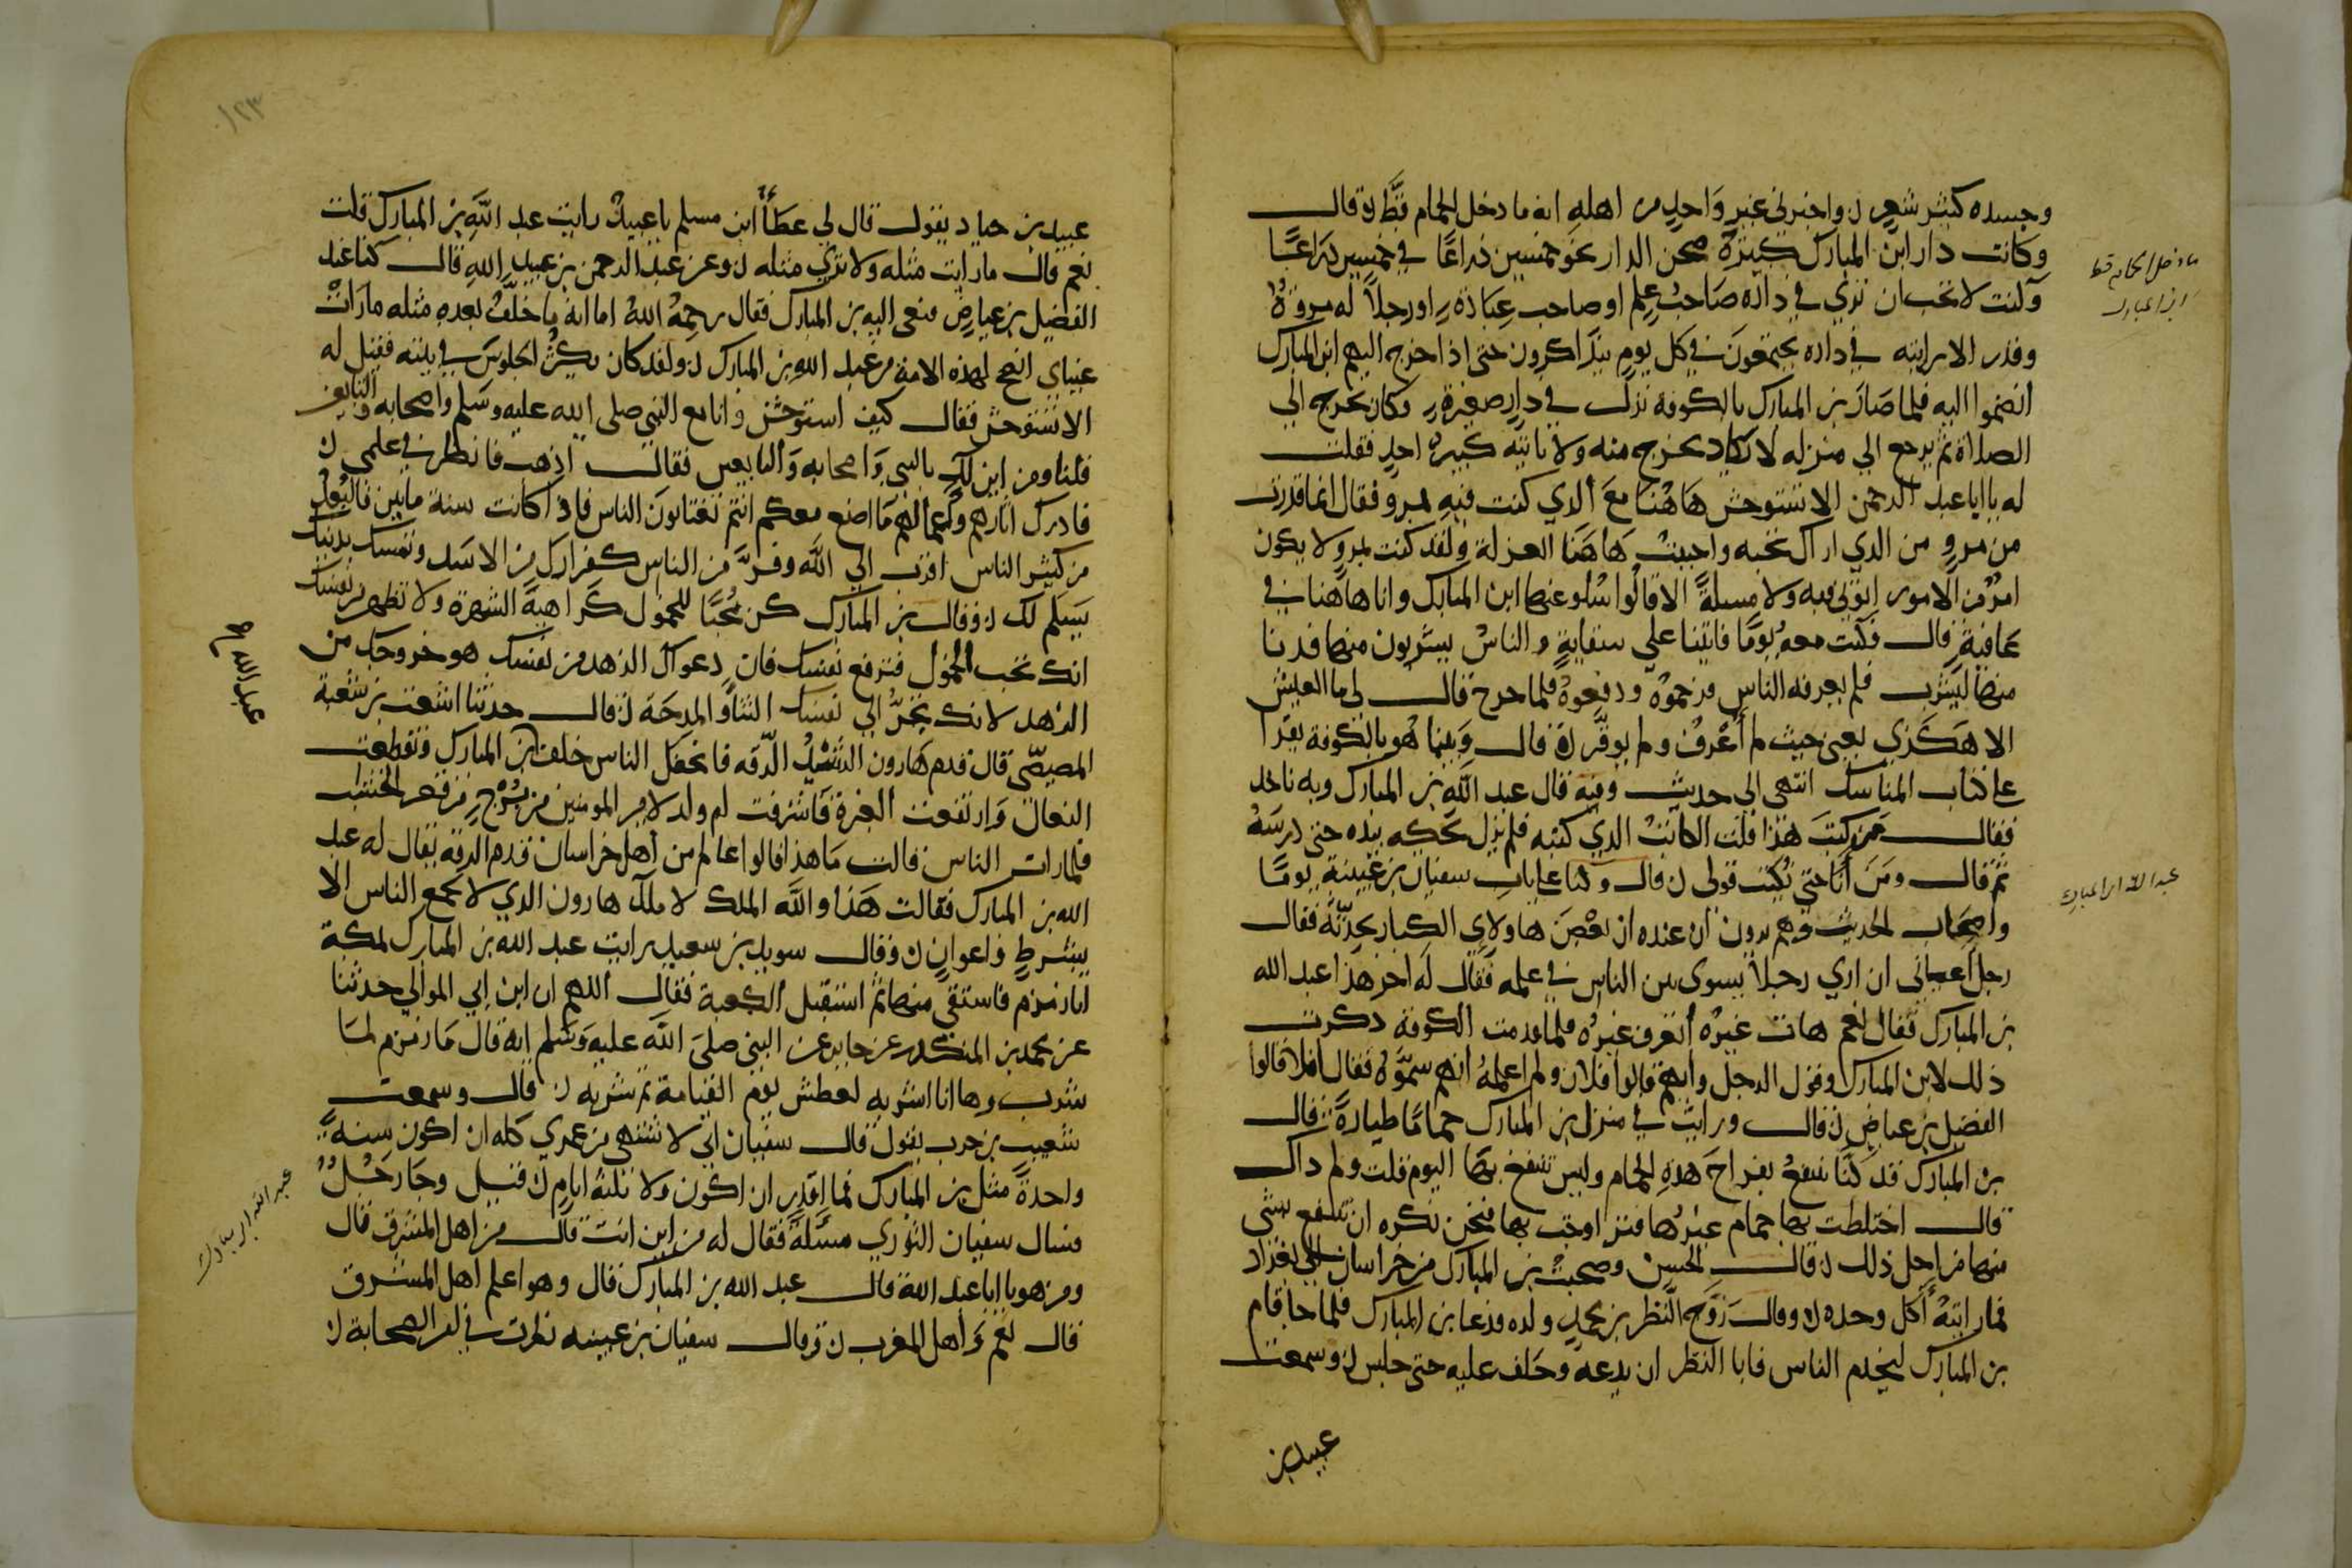 وجسده كثير شعر ن واخبرني غير واحد من اهله انه ما دخل الحمام قط ن وقال
وكانت دار ابن المبارك كبيرة صحن الدار نحو خمسين ذراعًا في خمسين ذراعًا
وكنت لا تحب ان تري في داره صاحب علم او صاحب عبادة او رجلاً له مروة
وقدر الا رايته في داره يجتمعون في كل يوم يتذاكرون حتى اذا خرج اليهم ابن المبارك
انضموا اليه فلما صار بن المبارك بالكوفة نزل في دار صغيرة وكان يخرج الي
الصلاة ثم يرجع الي منزله لا يكاد يخرج منه ولا ياتيه كبير احد فقلت
له يا ابا عبد الرحمن الا تستوحش هاهنا مع الذي كنت فيه بمرو فقال انما فررت
من مرو من الذي اراك تحبه واحببت هاهنا العزلة ولقد كنت بمرو لا يكون
امر من الامور اتوني فيه ولا مسلة الا قالوا سلوا عنها ابن المبارك وانا هاهنا في
عافية قال وكنت معه يومًا فاتينا علي سقاية والناس يشربون منها فدنا
منها ليشرب فلم يعرفه الناس فزحموه ودفعوه فلما خرج قال لي ما العيش
الا هكذي يعني حيث لم أعرف ولم نوقر ن قال وبينما هو بالكوفة يقرا
علي كتاب المناسك انتهى الى حديث وفيه قال عبد الله بن المبارك وبه ناخذ
فقال من كتب هذا قلت الكاتب الذي كتبه فلم يزل يحكه بيده حتى درسه
ثم قال ومن أنا حتى يكتب قولي ن قال وكنا علي باب سفيان بن عيينة يومًا
واصحاب الحديث وهم يرون ان عنده ان بعض هاولاي الكبار يحدثه فقال
رجل اعياني ان اري رجلاً يسوي بين الناس في علمه فقال له اخر هذا عبد الله
بن المبارك فقال نعم هات غيره أتعرف غيره فلما قدمت الكوفة ذكرت
ذلك لابن المبارك وقول الرجل وأيهم قالوا فلان ولم اعلمه انهم سموه فقال افلا قالوا
الفضيل بن عياض ن قال ورايت في منزل بن المبارك حمامًا طيارة ن قال
بن المبارك قد كنا ننتفع بفراخ هذه الحمام وليس ننتفع بها اليوم قلت ولم ذاك
قال اختلطت بها حمام غيرها فتزاوجت بها فنحن نكره ان ننتفع بشي
منها من اجل ذلك ن قال الحسن وصحبت بن المبارك من خراسان الي بغداد
فما رايته أكل وحده ن وقال زوج النظر بن محمد ولده ودعا بن المبارك فلما جا قام
بن المبارك ليخدم الناس فابا النظر ان يدعه وحلف عليه حتى جلس ن وسمعت
عبيد بن
ما دخل الحمام قط
ابن المبارك
عبد الله ابن المبارك
١٢٣
عبيد بن جناد يقول قال لي عطأ ابن مسلم يا عبيد رايت عبد الله بن المبارك قلت
نعم قال ما رايت مثله ولا تري مثله ن وعن عبد الرحمن بن عبيد الله قال كنا عند
الفضيل بن عياض فنعى اليه بن المبارك فقال رحمه الله اما انه ما خلف بعده مثله ما رات
عيناي انصح لهذه الامة من عبد الله بن المبارك ن ولقد كان يكثر الجلوس في بيته فقيل له
الا تستوحش فقال كيف استوحش وانا مع النبي صلى الله عليه وسلم واصحابه والتابعين
قلنا ومن اين لك بالنبي واصحابه والتابعين فقال اذهب فانظر في علمي ن
فادرك اثارهم واعمالهم ما اصنع معكم انتم تغتابون الناس فاذا كانت سنة مايتين فالبعد
من كثير الناس اقرب الي الله وفر من الناس كفرارك من الاسد وتمسك بدينك
يسلم لك ن وقال بن المبارك كن محبًا للخمول كراهية الشهرة ولا تظهر من نفسك
انك تحب الخمول فترفع نفسك فان دعواك الزهد من نفسك هو خروجك من
الزهد لانك تجر الي نفسك الثناء والمدحة ن قال حدثنا اشعث بن شعبة
المصيصي قال قدم هارون الرشيد الرقة فانجفل الناس خلف ابن المبارك وتقطعت
النعال وارتفعت الغبرة فاشرفت ام ولد لامير المومنين من برج من قصر الخشب
فلما رات الناس قالت ما هذا قالوا عالم من أهل خراسان قدم الرقة يقال له عبد
الله بن المبارك فقالت هذا والله الملك لا ملك هارون الذي لا يجمع الناس الا
بشرط واعوان ن وقال سويد بن سعيد رايت عبد الله بن المبارك بمكة
اتا زمزم فاستقي منها ثم استقبل الكعبة فقال اللهم ان ابن ابي الموالي حدثنا
عن محمد بن المنكدر عن جابر عن النبي صلى الله عليه وسلم انه قال ما زمزم لما
شرب وها انا اشربه لعطش يوم القيامة ثم شربه ن قال وسمعت
شعيب بن حرب يقول قال سفيان اني لاشتهي من عمري كله ان اكون سنة
واحدة مثل بن المبارك فما اقدر ان اكون ولا ثلثة ايام ن قيل وجا رجل
فسال سفيان الثوري مسئلة فقال له من اين انت قال من اهل المشرق قال
ومن هو يا ابا عبد الله قال عبد الله بن المبارك قال وهو اعلم اهل المشرق
قال نعم وأهل المغرب ن وقال سفيان بن عيينه نظرت في امر الصحابة ن
عبد الله
عبد الله ابن مبارك